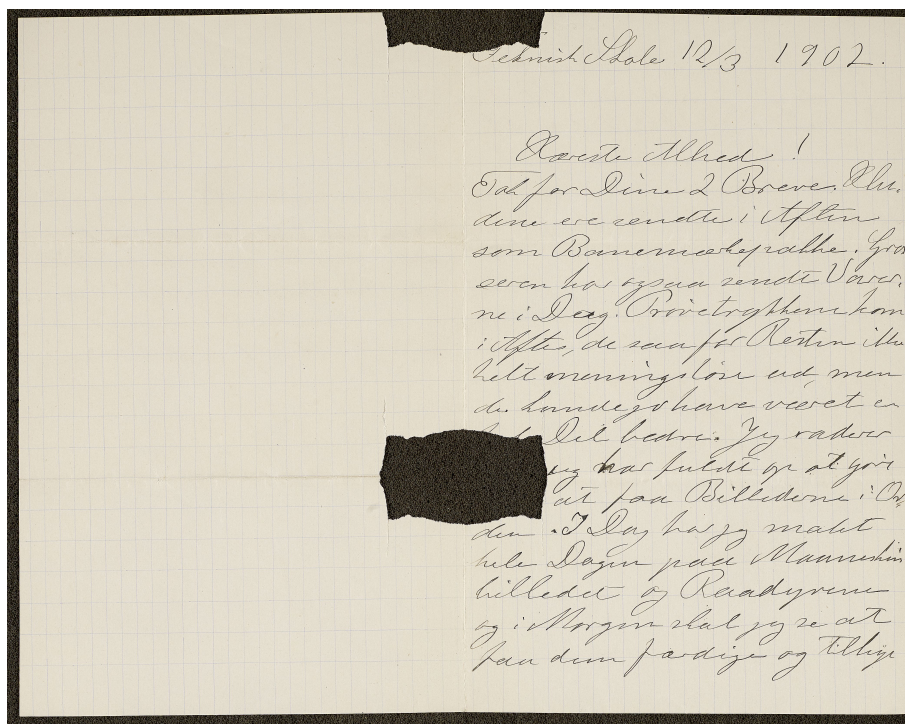 Teknisk Skole 12/3 1902.
Kæreste Alhed!
Tak for Dine 2 Breve. Klu-
dene ere sendte i Aften
som Banemærkepakke. Gros
seren har ogsaa sendt Varer-
ne i Dag. Prøvetrykkene kom
i Aftes, de saa for Resten ikke
helt meningsløse ud, men
de kunde jo have været en
Del bedre. Jeg raderer
jeg har fuldt op at gøre
at faa Billederne i Or-
den. I Dag har jeg malet
hele Dagen paa Maaneskins
billedet og Raadyrene
og i Morgen skal jeg se at
faa dem færdige og tillige